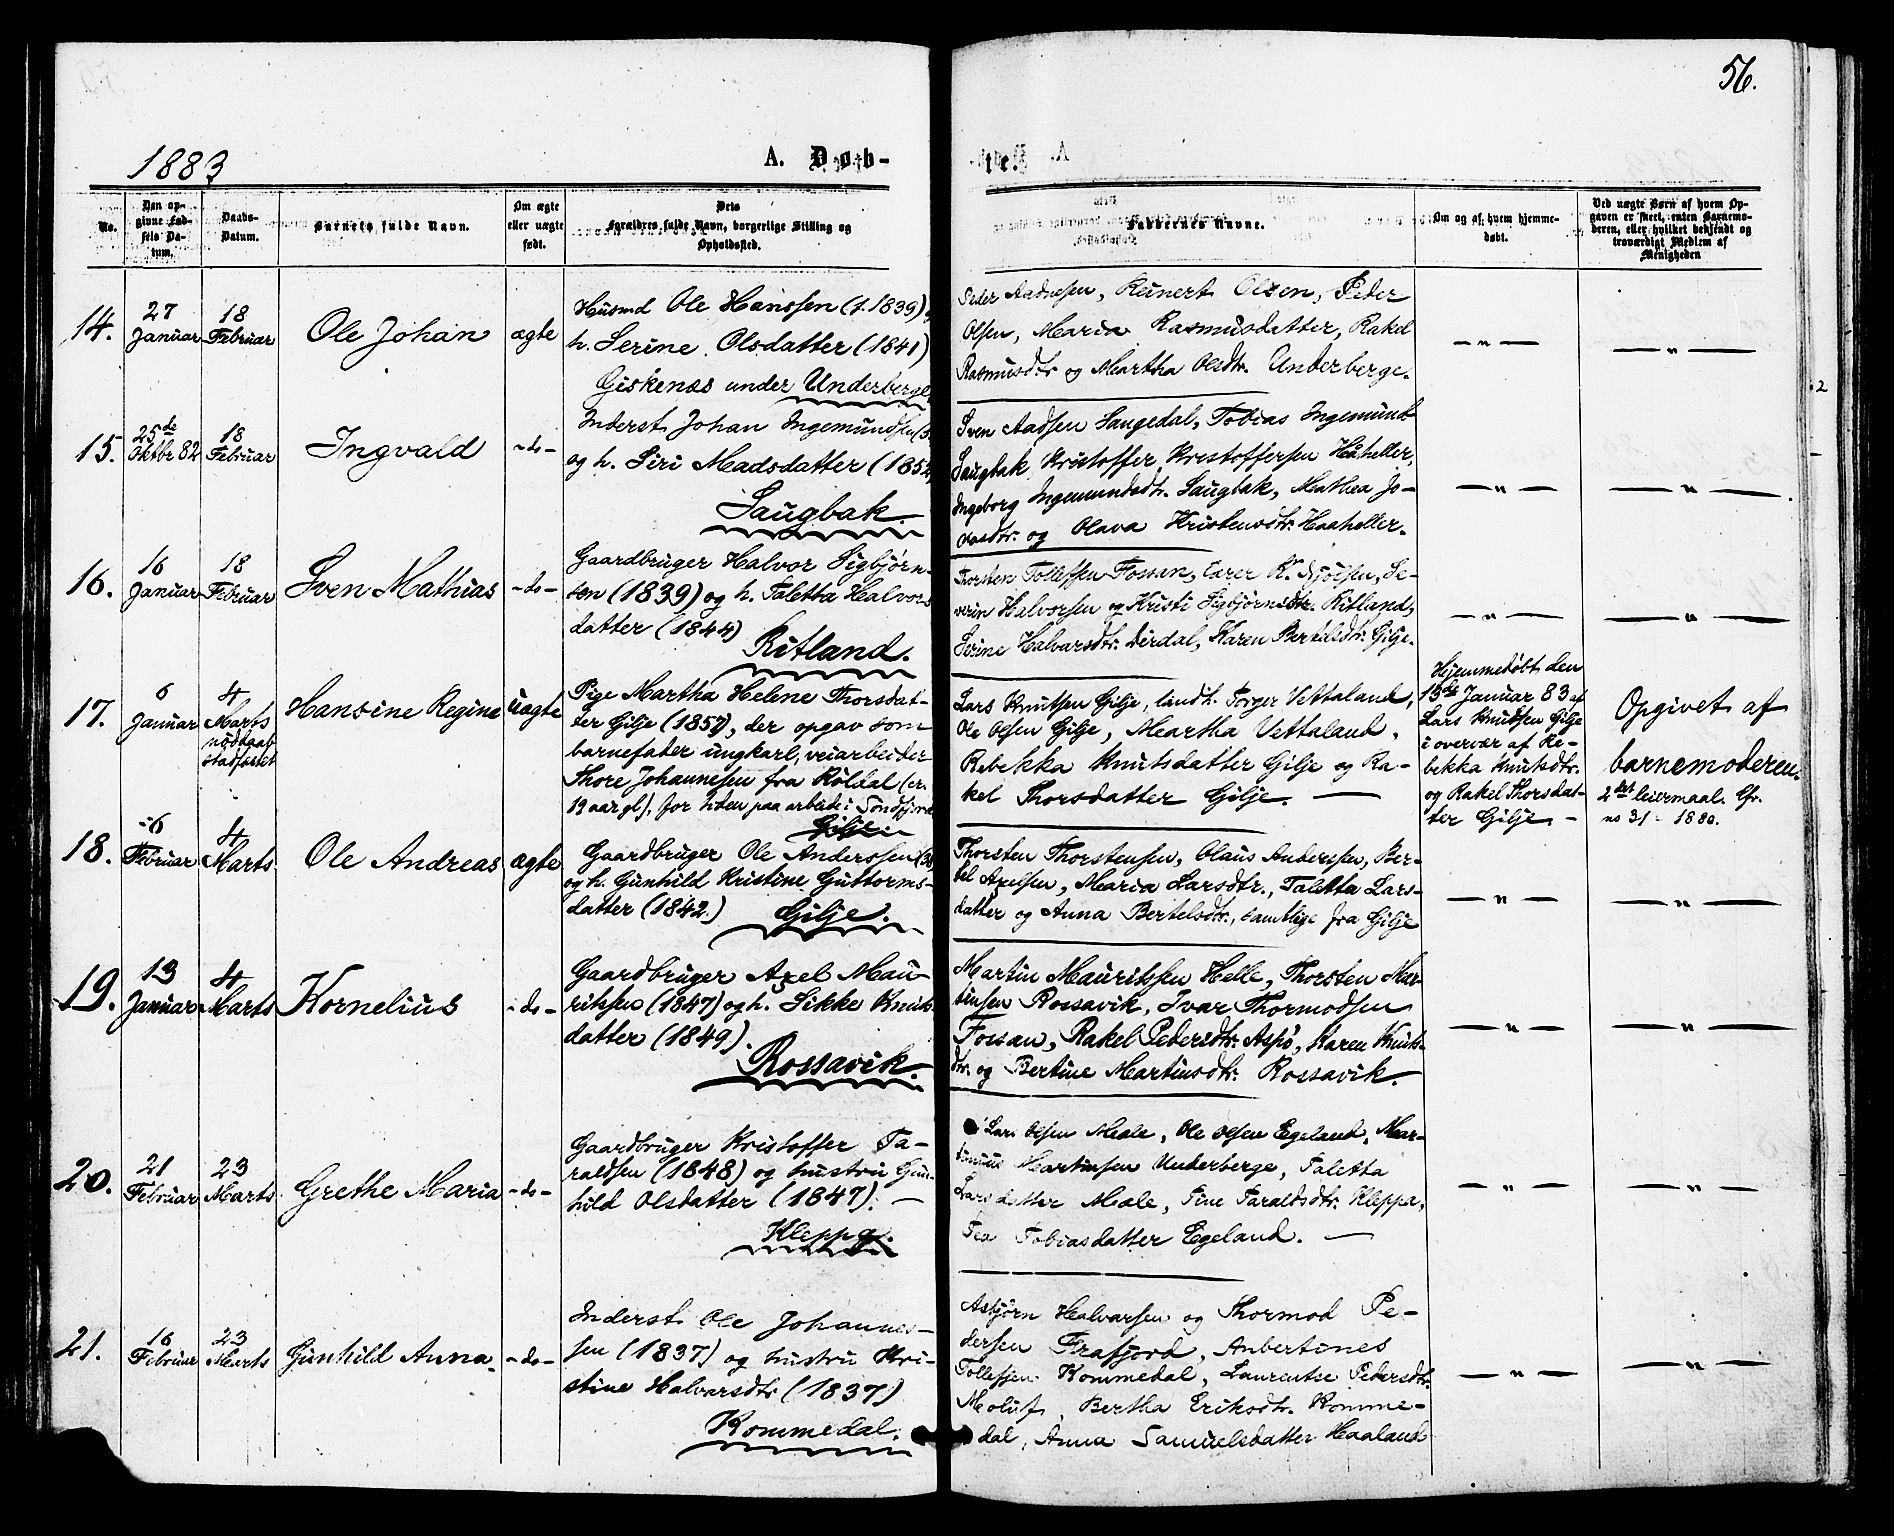 56.
1883
A. Døb-
te.
No.
Den op-
givne Fød-
sels Da-
tum.
Daabs-
Datum.
Barnets fulde Navn.
Om ægte
eller uægte
født.
Dets
Forældres fulde Navn, borgerlige Stilling og
Opholdssted.
Faddernes Navne.
Om og af hvem hjemme-
døbt.
Ved uægte Børn af hvem Op-
gaven er skeet, enten Barnemo-
deren, eller hvilket bekjendt og
troværdigt Medlem af
Menigheden
14.
27
Januar
18
Februar
Ole Johan
ægte
Husmd Ole Hanssen (f. 1839)
h. Serine Olsdatter (1841)
Giskenæs under Underberge
Peder Aadnesen, Reinert Olsen, Peder
Olsen, Maria Rasmusdatter, Rakel
Rasmusdtr og Martha Olsdtr. Underberge.
— " —
— " —
15.
25de
Oktbr 82
18
Februar
Ingvald
- do -
Inderst Johan Ingemundsen
og h. Siri Madsdatter (1852
Saugbak.
Sven Aadsen Saugedal, Tobias Ingemund
Saugbak, Kristoffer Kristoffersen Haheller,
Ingeborg Ingemundsdtr. Saugbak, Mathea Jo-
nasdtr. og Olava Kristensdtr. Haaheller.
— " —
— " —
16.
16
Januar
18
Februar
Sven Mathias
- do -
Gaardbruger Halvor Sigbjørn-
sen (1839) og h. Taletta Halvors
datter (1844)
Ritland.
Thorsten Tollefsen Fossan, Lærer K. , Se-
verin Halvorsen og Kristi Sigbjørnsdtr. Ritland,
Serine Halvarsdtr. Dirdal, Karen Bertelsdtr. Gilje.
— " —
— " —
17.
6
Januar
4
Marts
nødtaab
stadfæstet
Hansine Regine
uægte
Pige Martha Helene Thorsdat-
ter Gilje (1857), der opgav som
barnefader ungkarl, veiarbeider
Thore Johannesen fra Røldal (cr.
19 aar gl.), for tiden paa arbeide i Søndfjord
Gilje.
Lars Knutsen Gilje, landh. Torger Vettaland,
Ole Olsen Gilje, Martha Vettaland,
Rebekka Knutsdatter Gilje og Ra-
kel Thorsdatter Gilje. —
Hjemmedøbt den
15de Januar 83 af
Lars Knudsen Gilje
i overvær af Re-
bekka Knutsdtr.
og Rakel Thorsdat-
ter Gilje -
Opgivet af
barnemoderen.
2det leiermaal. Cfr.
no 31 - 1880.
18.
6
Februar
4
Marts
Ole Andreas
ægte
Gaardbruger Ole Anderssen (38)
og h. Gunhild Kristine Guttorms-
datter (1842.)
Gilje.
Thorsten Thorstensen, Olaus Anderssen, Ber-
tel Axelsen, Maria Larsdtr., Taletta Lars-
datter og Anna Bertelsdtr., samtlige fra Gilje
— " —
— " —
19.
13
Januar
4
Marts
Kornelius
- do -
Gaardbruger Axel Mau-
ritsen (1847) og h. Sikke Knuts
datter (1849).
Rossavik.
Martin Mauritssen Helle, Thorsten Mar-
tinsen Rossavik, Ivar Thormodsen
Fossan, Rakel Pedersdtr. Aspø, Karen Knuts-
dtr. og Bertine Martinsdtr. Rossavik.
— " —
— " —
20.
21
Februar
23
Marts
Grethe Maria
- do -
Gaardbruger Kristoffer Ta-
raldsen (1848) og hustru Gun-
hild Olsdatter (1847). —
Kleppa.
Lars Olsen Mæle, Ole Olsen Egeland, Mar-
tinius Martinsen Underberge, Taletta
Larsdatter Mæle, Tine Taraldsdtr. Kleppa,
Tea Tobiasdatter Egeland. —
— " —
— " —
21.
16
Februar
23
Marts
Gunhild Anna
- do -
Inderst Ole Johannes-
sen (1837) og hustru Kri-
stine Halvarsdtr (1837)
Kommedal.
Asbjørn Halvarsen og Thormod Pe-
dersen Frafjord, Anbertines
Tollefsen Kommedal, Laurentse Pedersdtr.
Moluf, Bertha Eriksdtr. Komme-
dal, Anna Samuelsdatter Haaland
— " —
— " —